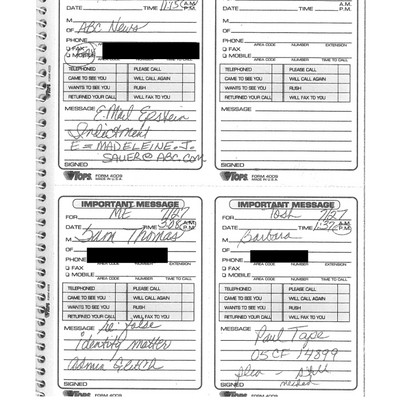 DATE TIME 11:45 A.M. P.M.
M
OF ABC News
PHONE
FAX
MOBILE AREA CODE NUMBER TIME TO CALL
TELEPHONED PLEASE CALL
CAME TO SEE YOU WILL CALL AGAIN
WANTS TO SEE YOU RUSH
RETURNED YOUR CALL WILL FAX TO YOU
MESSAGE E.Mail Epstein
Indictment
E = MADELEINE.J.
SAUER@ABC.COM
SIGNED
TOPS FORM 4009
MADE IN U.S.A.
DATE TIME A.M. P.M.
M
OF
PHONE
AREA CODE NUMBER EXTENSION
FAX
MOBILE
AREA CODE NUMBER TIME TO CALL
TELEPHONED PLEASE CALL
CAME TO SEE YOU WILL CALL AGAIN
WANTS TO SEE YOU RUSH
RETURNED YOUR CALL WILL FAX TO YOU
MESSAGE
SIGNED
TOPS FORM 4009
MADE IN U.S.A.
IMPORTANT MESSAGE
FOR ME
DATE 7/27 TIME 3:08 A.M. P.M.
M Sam Thomas
OF
PHONE
AREA CODE NUMBER EXTENSION
FAX
MOBILE
AREA CODE NUMBER TIME TO CALL
TELEPHONED PLEASE CALL
CAME TO SEE YOU WILL CALL AGAIN
WANTS TO SEE YOU RUSH
RETURNED YOUR CALL WILL FAX TO YOU
MESSAGE re: false
identity matter
Admin Glitch
SIGNED
TOPS FORM 4009
IMPORTANT MESSAGE
FOR Tosh
DATE 7/27 TIME 1:37 A.M. P.M.
M Barbara
OF
PHONE
AREA CODE NUMBER EXTENSION
FAX
MOBILE
AREA CODE NUMBER TIME TO CALL
TELEPHONED PLEASE CALL
CAME TO SEE YOU WILL CALL AGAIN
WANTS TO SEE YOU RUSH
RETURNED YOUR CALL WILL FAX TO YOU
MESSAGE
Paul Tape
05CF 14899
Plea - still
needed
SIGNED
TOPS FORM 4009